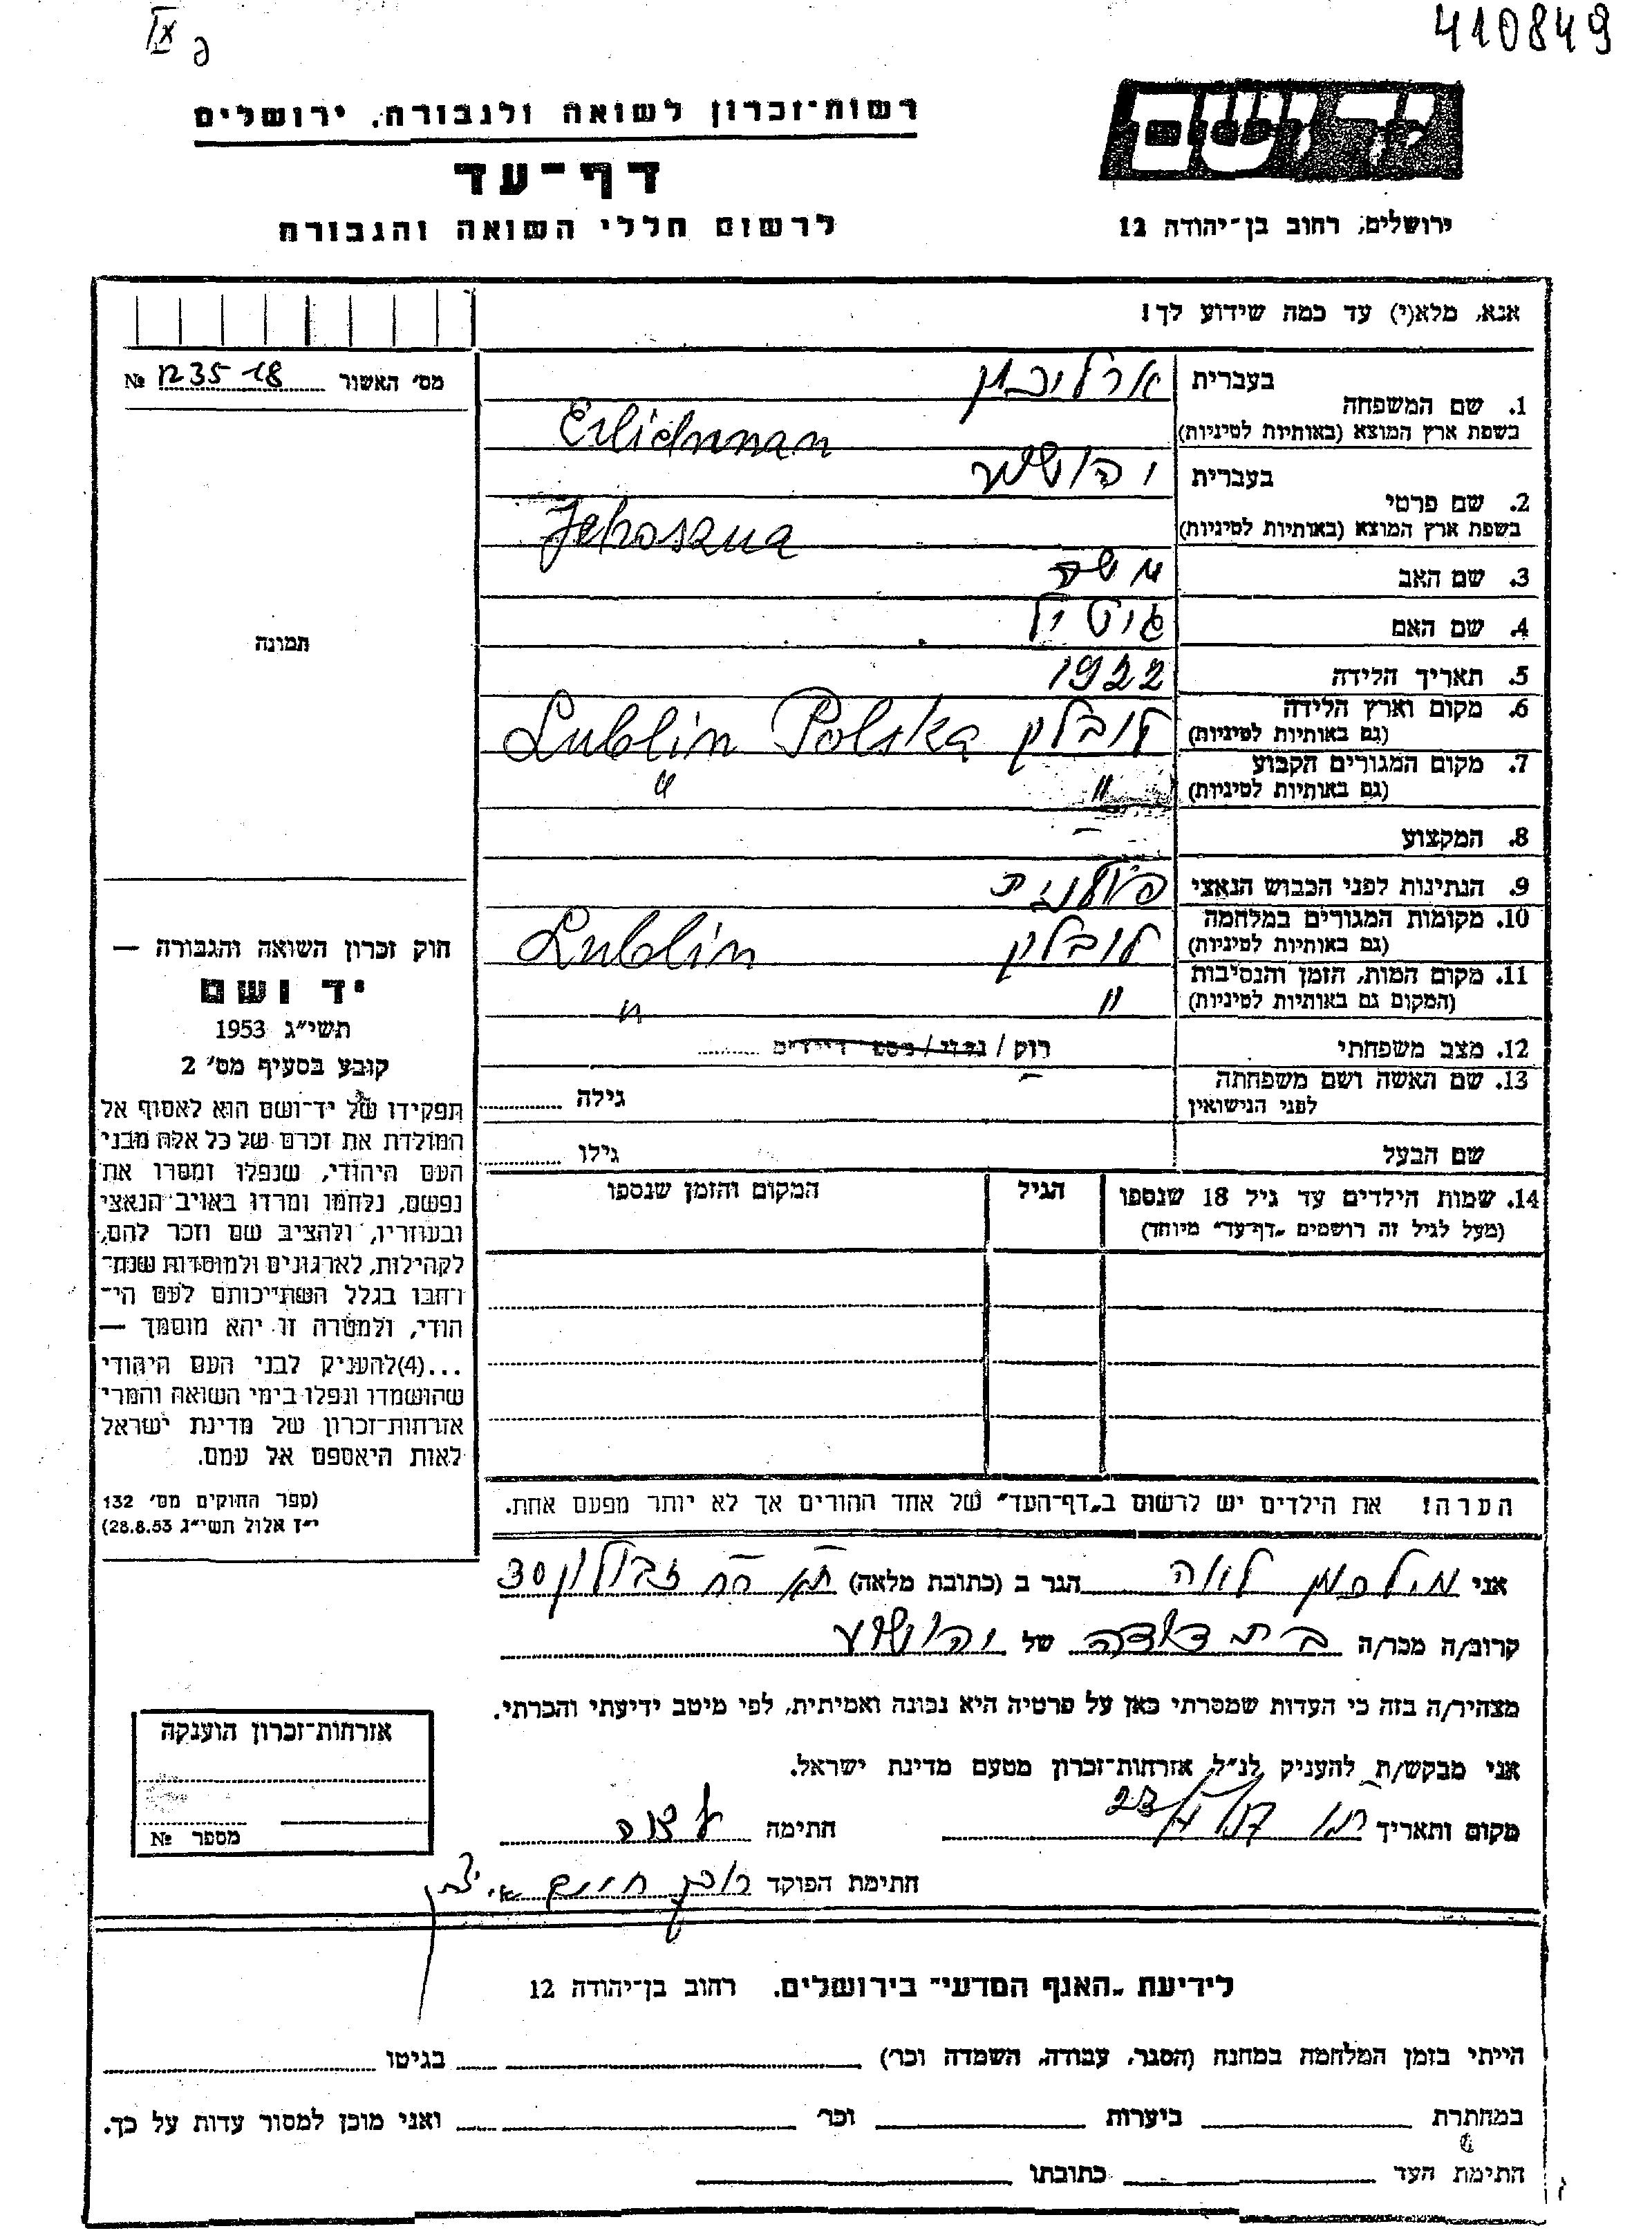 IX
410849
יד ושם
רשות־זכרון לשואה ולגבורה, ירושלים
דף־עד
לרשום חללי השואה והגבורה
ירושלים, רחוב בן־יהודה 12
אנא, מלא(י) עד כמה שידוע לך!
מס׳ האשור № 1235 18
תמונה
1. שם המשפחה
בעברית ארליכמן
בשפת ארץ המוצא (באותיות לטיניות) Erlichman
2. שם פרטי
בעברית יהושע
בשפת ארץ המוצא (באותיות לטיניות) Jehoszua
3. שם האב משה
4. שם האם גיטל
5. תאריך הלידה 1922
6. מקום וארץ הלידה
(גם באותיות לטיניות) לובלין Lublin Polska
7. מקום המגורים הקבוע
(גם באותיות לטיניות) " "
8. המקצוע –
9. הנתינות לפני הכבוש הנאצי פולנית
10. מקומות המגורים במלחמה
(גם באותיות לטיניות) לובלין Lublin
11. מקום המות, הזמן והנסיבות
(המקום גם באותיות לטיניות) " "
12. מצב משפחתי רוק / נשוי / מספר הילדים
13. שם האשה ושם משפחתה
לפני הנישואין – גילה
שם הבעל גילו
14. שמות הילדים עד גיל 18 שנספו
(מעל לגיל זה רושמים „דף־עד״ מיוחד)
הגיל
המקום והזמן שנספו
חוק זכרון השואה והגבורה —
יד ושם
תשי״ג 1953
קובע בסעיף מס׳ 2
תפקידו של יד־ושם הוא לאסוף אל
המולדת את זכרם של כל אלה מבני
העם היהודי, שנפלו ומסרו את
נפשם, נלחמו ומרדו באויב הנאצי
ובעוזריו, ולהציב שם וזכר להם,
לקהילות, לארגונים ולמוסדות שנח־
רחבו בגלל השתייכותם לעם הי־
הודי, ולמטרה זו יהא מוסמך —
...(4)להעניק לבני העם היהודי
שהושמדו ונפלו בימי השואה והמרי
אזרחות־זכרון של מדינת ישראל
לאות היאספם אל עמם.
(ספר החוקים מס׳ 132
י״ז אלול תשי״ג 28.8.53)
הערה! את הילדים יש לרשום ב„דף־העד״ של אחד ההורים אך לא יותר מפעם אחת.
אני לאה הגר ב (כתובת מלאה) ת״א רח זבולון 30
קרוב/ה מכר/ה בת דודה של יהושע
מצהיר/ה בזה כי העדות שמסרתי כאן על פרטיה היא נכונה ואמיתית, לפי מיטב ידיעתי והכרתי.
אני מבקש/ת להעניק לנ״ל אזרחות־זכרון מטעם מדינת ישראל.
מקום ותאריך חתימה
חתימת הפוקד
אזרחות־זכרון הוענקה
מספר №
לידיעת „האגף המדעי״ בירושלים. רחוב בן־יהודה 12
הייתי בזמן המלחמה במחנה (הסגר, עבודה, השמדה וכר׳) בגיטו
במחתרת ביערות וכר׳ ואני מוכן למסור עדות על כך.
חתימת העד כתובתו